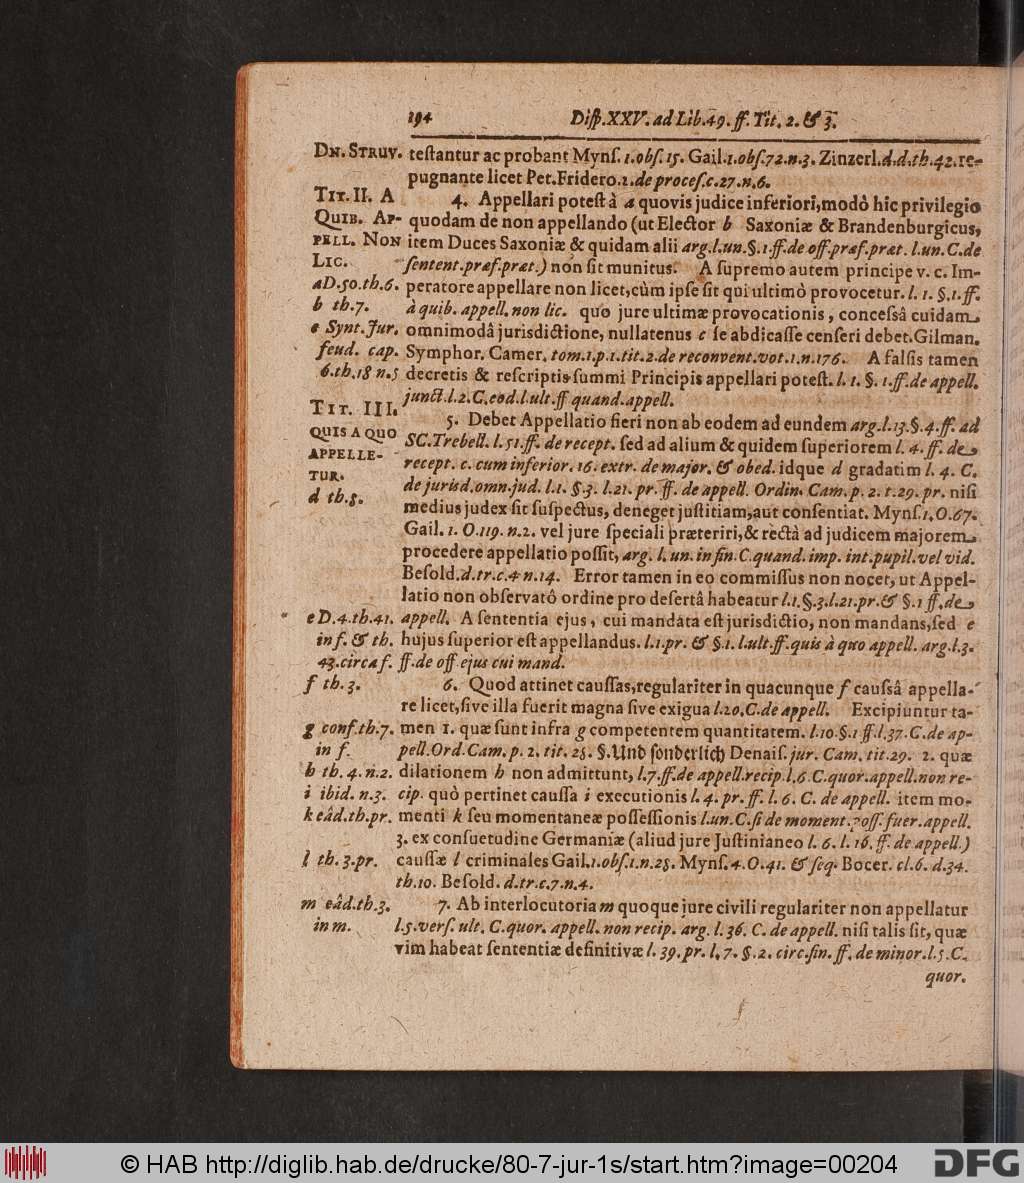 194 Diſp. XXV. ad Lib. 49. ff. Tit. 2. & 3.
DN. STRUV. teſtantur ac probant Mynſ. 1. obſ. 15. Gail. 1. obſ. 72. n. 3. Zinzerl. d. d. th. 42. re-
pugnante licet Pet. Fridero. 2. de proceſ. c. 27. n. 6.
TIT. II. A 4. Appellari poteſt à a quovis judice inferiori, modò hic privilegio
QUIB. AP- quodam de non appellando (ut Elector b Saxoniæ & Brandenburgicus,
PELL. NON item Duces Saxoniæ & quidam alii arg. l. un. §. 1. ff. de off. præf. præt. l. un. C. de
LIC. ſentent. præf. præt.) non ſit munitus. A ſupremo autem principe v. c. Im-
a D. 50. th. 6. peratore appellare non licet, cùm ipſe ſit qui ultimò provocetur. l. 1. §. 1. ff.
b th. 7. à quib. appell. non lic. quo jure ultimæ provocationis, conceſsâ cuidam
c Synt. Jur. omnimodâ jurisdictione, nullatenus c ſe abdicaſſe cenſeri debet. Gilman.
feud. cap. Symphor. Camer. tom. 1. p. 1. tit. 2. de reconvent. vot. 1. n. 176. A falſis tamen
6. th. 18 n. 5 decretis & reſcriptis ſummi Principis appellari poteſt. l. 1. §. 1. ff. de appell.
TIT. III. junct. l. 2. C. eod. l. ult. ff quand. appell.
QUIS A QUO 5. Debet Appellatio fieri non ab eodem ad eundem arg. l. 13. §. 4. ff. ad
APPELLE- SC. Trebell. l. 51. ff. de recept. ſed ad alium & quidem ſuperiorem l. 4. ff. de
TUR. recept. c. cum inferior. 16. extr. de major. & obed. idque d gradatim l. 4. C.
d th. 8. de jurisd. omn. jud. l. 1. §. 3. l. 21. pr. ff. de appell. Ordin. Cam. p. 2. t. 29. pr. niſi
medius judex ſit ſuſpectus, deneget juſtitiam, aut conſentiat. Mynſ. 1. O. 67.
Gail. 1. O. 119. n. 2. vel jure ſpeciali præteriri, & rectà ad judicem majorem
procedere appellatio poſſit, arg. l. un. in fin. C. quand. imp. int. pupil. vel vid.
Beſold. d. tr. c. 4 n. 14. Error tamen in eo commiſſus non nocet, ut Appel-
latio non obſervatô ordine pro desertâ habeatur l. 1. §. 3. l. 21. pr. & §. 1 ff. de
e D. 4. th. 41. appell. A ſententia ejus, cui mandata eſt jurisdictio, non mandans, ſed e
in f. & th. hujus ſuperior eſt appellandus. l. 1. pr. & §. 1. l. ult. ff. quis à quo appell. arg. l. 3.
43. circa f. ff. de off ejus cui mand.
f th. 3. 6. Quod attinet cauſſas, regulariter in quacunque f cauſsâ appella-
re licet, ſive illa fuerit magna ſive exigua l. 20. C. de appell. Excipiuntur ta-
g conf. th. 7. men 1. quæ ſunt infra g competentem quantitatem. l. 10. §. 1 ff. l. 37. C. de ap-
in f. pell. Ord. Cam. p. 2. tit. 28. §. Und ſonderlich Denaiſ. jur. Cam. tit. 29. 2. quæ
h th. 4. n. 2. dilationem h non admittunt, l. 7. ff. de appell. recip. l. 6. C. quor. appell. non re-
i ibid. n. 3. cip. quò pertinet cauſſa i executionis l. 4. pr. ff. l. 6. C. de appell. item mo-
k eâd. th. pr. menti k ſeu momentaneæ poſſeſſionis l. un. C. ſi de moment. poſſ. fuer. appell.
3. ex conſuetudine Germaniæ (aliud jure Juſtinianeo l. 6. l. 16. ff. de appell.)
l th. 3. pr. cauſſæ l criminales Gail. 1. obſ. 1. n. 28. Mynſ. 4. O. 41. & ſeq. Bocer. cl. 6. d. 34.
th. 10. Beſold. d. tr. c. 7. n. 4.
m eâd. th. 3. 7. Ab interlocutoria m quoque jure civili regulariter non appellatur
in m. l. 5. verſ. ult. C. quor. appell. non recip. arg. l. 36. C. de appell. niſi talis ſit, quæ
vim habeat ſententiæ definitivæ l. 39. pr. l. 7. §. 2. circ. fin. ff. de minor. l. 5. C.
quor.
© HAB http://diglib.hab.de/drucke/80-7-jur-1s/start.htm?image=00204 DFG